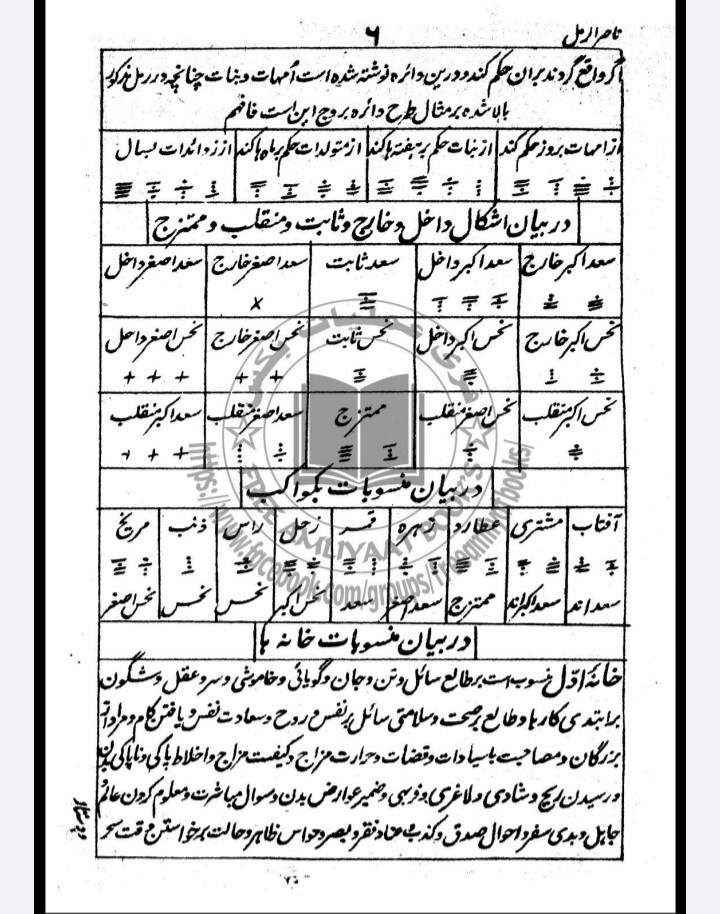 ناصر الرمل
۶
اگر واقع گردند بران حکم کند و درین دائره نوشته شده است اُمهات و بنات چنانچه در رمل مذکور
بالا شده بر مثال طرح دائره بروج این است فافهم
از امهات بروز حکم کند | از بنات حکم بر هفته ها کند | از متولدات حکم بر ماه ها کند | از زوائدات بسال
در بیان اشکال داخل و خارج و ثابت و منقلب و ممتزج
سعد اکبر خارج | سعد اکبر داخل | سعد ثابت | سعد اصغر خارج | سعد اصغر داخل
×
نحس اکبر خارج | نحس اکبر داخل | نحس ثابت | نحس اصغر خارج | نحس اصغر داخل
+ + + + +
نحس اکبر منقلب | نحس اصغر منقلب | ممتزج | سعد اصغر منقلب | سعد اکبر منقلب
+ + +
در بیان منسوبات بکواکب
آفتاب | مشتری | عطارد | زہرہ | قمر | زحل | راس | ذنب | مریخ
سعد اند | سعد اکبر اند | ممتزج | سعد اصغر | سعد | نحس اکبر | نحس | نحس | نحس اصغر
در بیان منسوبات خانه ها
خانهٔ اوّل منسوب است بر طالع سائل و تن و جان و گویائی و خاموشی و سر و عقل و شگون
بر ابتدی کارها و طالع بر صحت و سلامتی سائل بر نفس و روح و سعادت نفس و یافتن کام و مراد از
بزرگان و مصاحبت با سادات و قضات و حرارت مزاج و کیفیت مزاج و اخلاط پاکی و ناپاکی بدن
و رسیدن رنج و شادی و لاغری و فربهی و ضمیر عوارض بدن و سوال مباشرت و معلوم کردن عالم
جاهل و بدی سفر و احوال صدق و کذب و بصر و حواس ظاهر و حالت برخواستن وقت سحر
FREE AMLIYAAT BOOKS
https://www.facebook.com/groups/freeamliyatbooks/